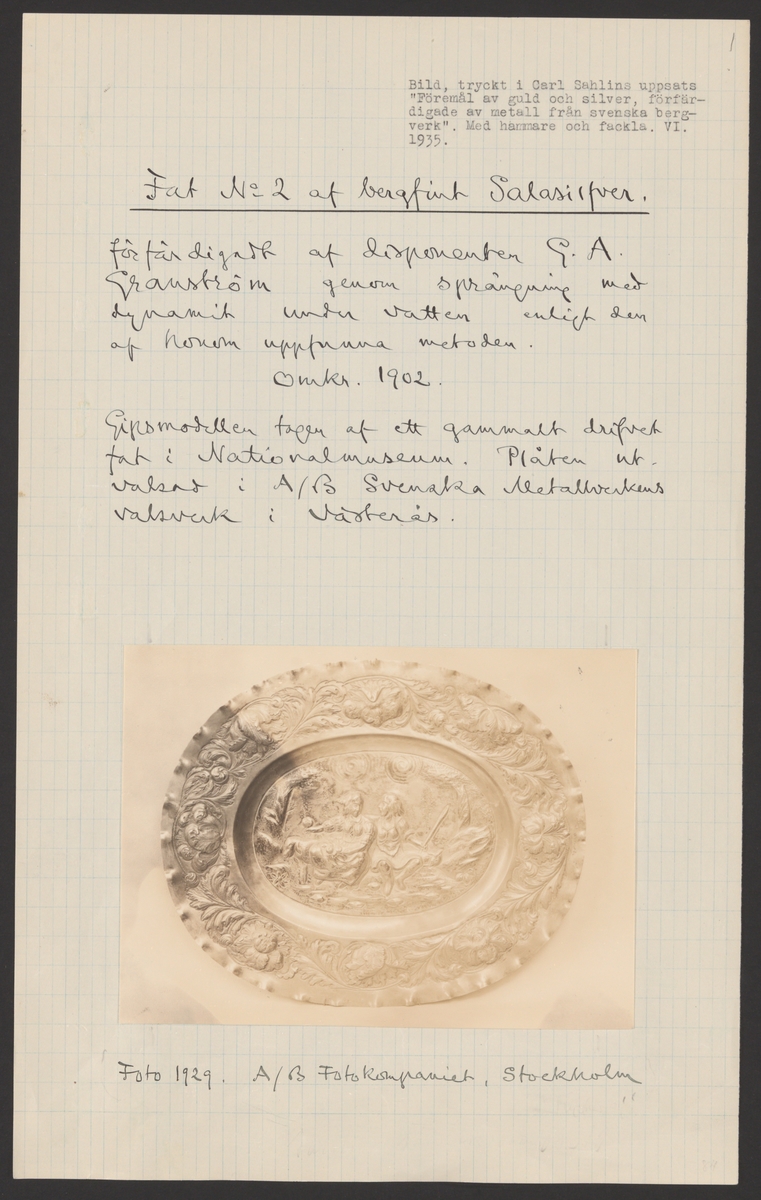 1
Bild, tryckt i Carl Sahlins uppsats
"Föremål av guld och silver, förfär-
digade av metall från svenska berg-
verk". Med hammare och fackla. VI.
1935.
Fat No 2 af bergfint Salasilfver.
förfärdigadt af disponenten G. A.
Granström genom sprängning med
dynamit under vatten enligt den
af honom uppfunna metoden.
Omkr. 1902.
Gipsmodellen tagen af ett gammalt drifvet
fat i Nationalmuseum. Plåten ut-
valsad i A/B Svenska Metallverkens
valsverk i Västerås.
Foto 1929. A/B Fotokompaniet, Stockholm